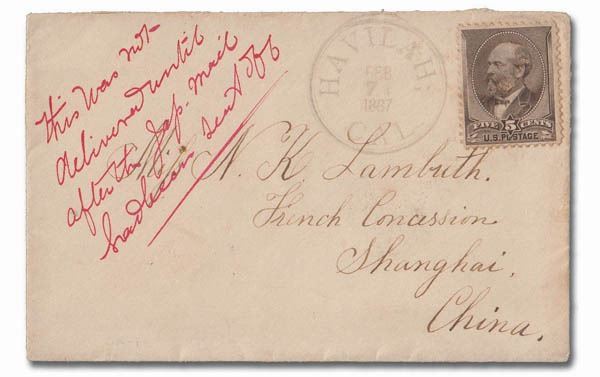 This was not
delivered until
after the Jap. mail
had been sent off
HAVILAH;
FEB
7
1887
CAL
FIVE 5 CENTS
U.S. POSTAGE
N. K. Lambuth.
French Concession
Shunghai,
China.